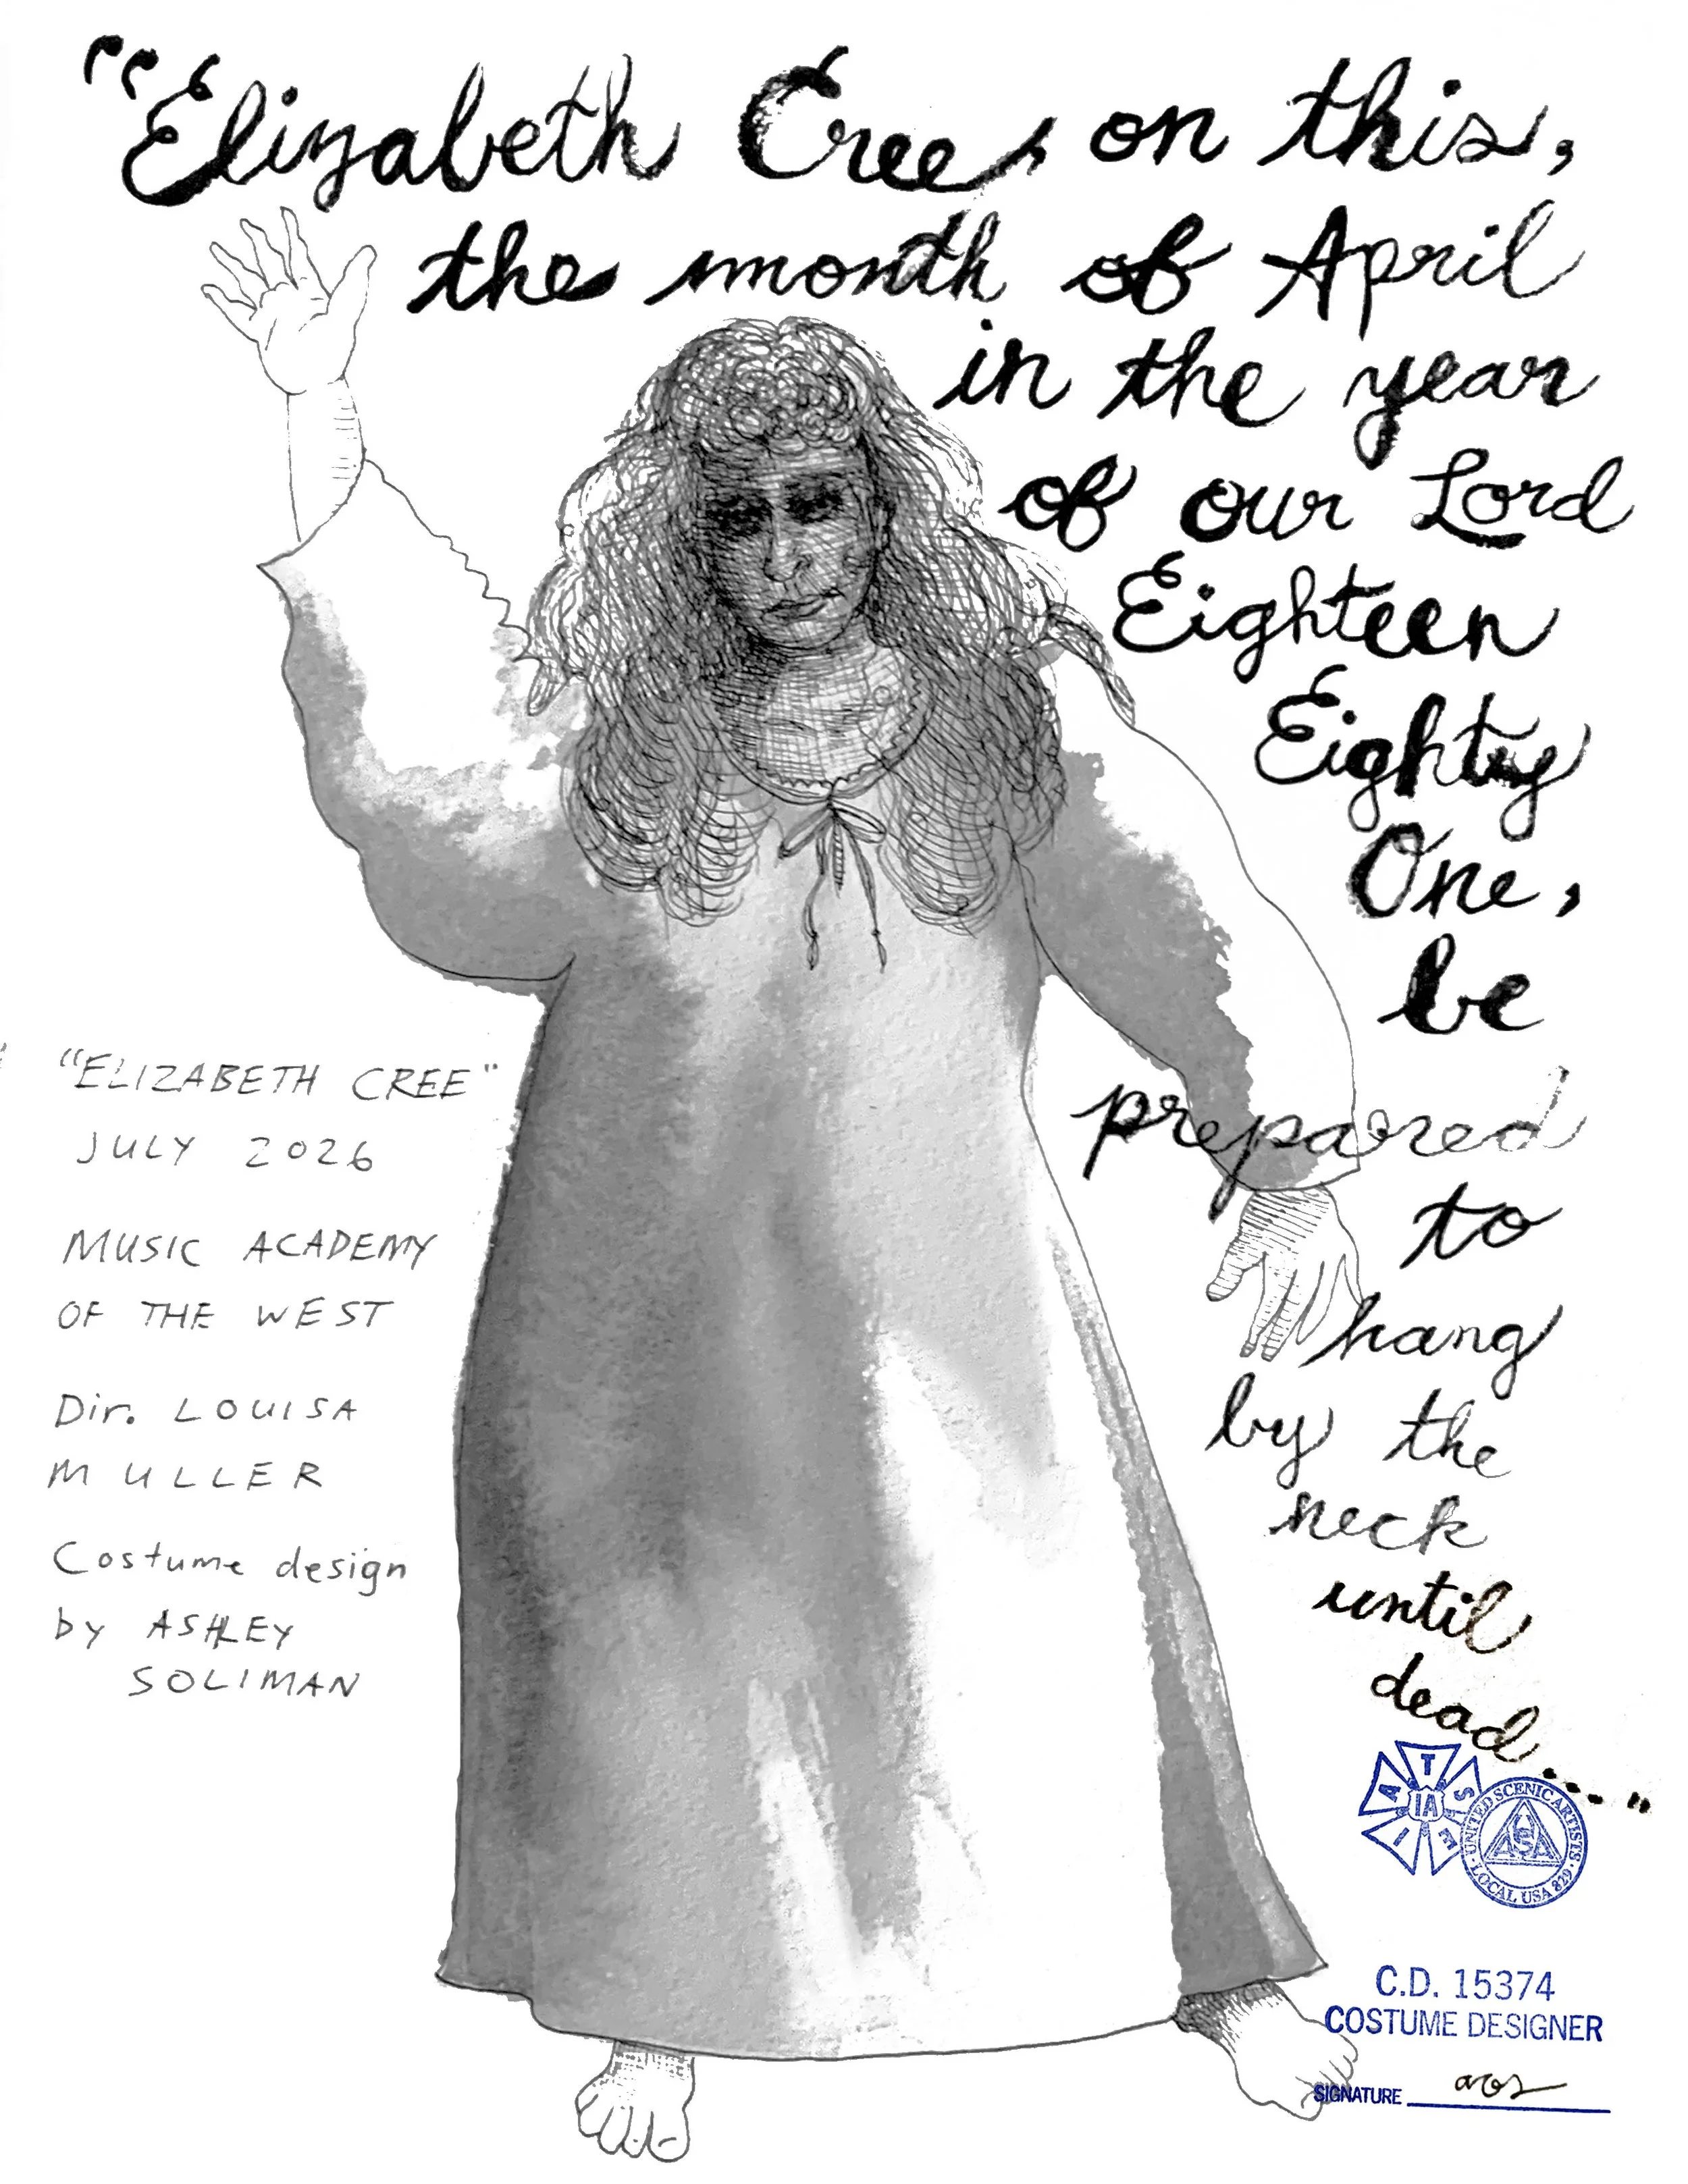 "Elizabeth Cree, on this,
the month of April
in the year
of our Lord
Eighteen
Eighty
One,
be
prepared
to
hang
by the
neck
until
dead..."
"ELIZABETH CREE"
JULY 2026
MUSIC ACADEMY
OF THE WEST
Dir. LOUISA
MULLER
Costume design
by ASHLEY
SOLIMAN
I A T S E
IA
UNITED SCENIC ARTISTS
USA
LOCAL USA 829
C.D. 15374
COSTUME DESIGNER
SIGNATURE